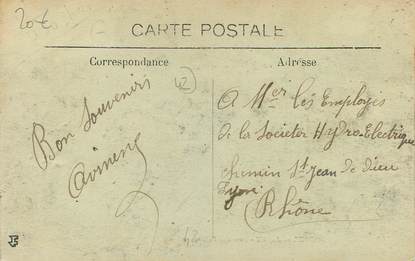 20€
CARTE POSTALE
Correspondance
Adresse
42
Bon Souvenirs
A Mers les Employés
de la Societer Hydro-Electrique
chemin St Jean de Dieu
Lyon
Rhône
42